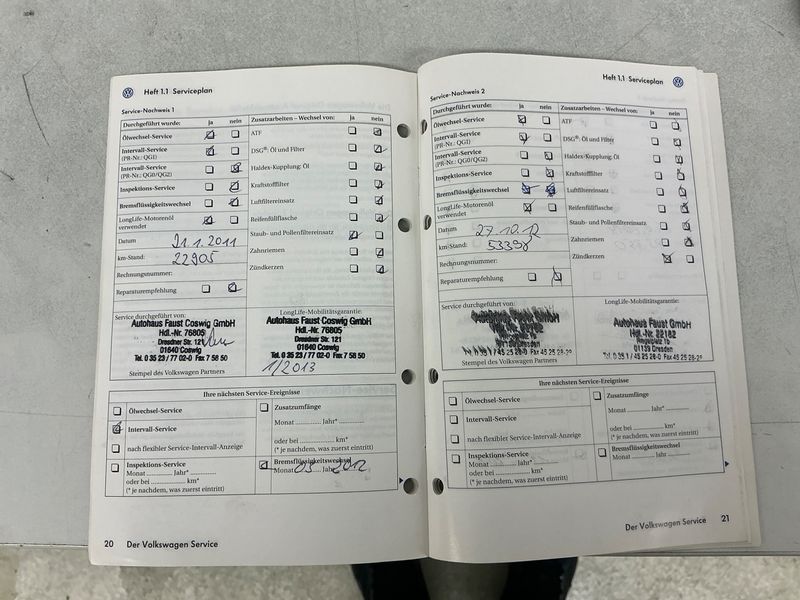 Heft 1.1 Serviceplan
Service-Nachweis 1
Durchgeführt wurde: ja nein Zusatzarbeiten – Wechsel von: ja nein
Ölwechsel-Service ATF
Intervall-Service
(PR-Nr.: QG1) DSG®: Öl und Filter
Intervall-Service
(PR-Nr.: QG0/QG2) Haldex-Kupplung: Öl
Inspektions-Service Kraftstofffilter
Bremsflüssigkeitswechsel Luftfiltereinsatz
LongLife-Motorenöl
verwendet Reifenfüllflasche
Datum 21.1.2011 Staub- und Pollenfiltereinsatz
km-Stand: 22905 Zahnriemen
Rechnungsnummer: Zündkerzen
Reparaturempfehlung
Service durchgeführt von: LongLife-Mobilitätsgarantie:
Autohaus Faust Coswig GmbH
Hdl.-Nr. 76805
Dresdner Str. 121
01640 Coswig
Tel. 0 35 23 / 77 02-0 Fax 7 58 50
Autohaus Faust Coswig GmbH
Hdl.-Nr. 76805
Dresdner Str. 121
01640 Coswig
Tel. 0 35 23 / 77 02-0 Fax 7 58 50
1/2013
Stempel des Volkswagen Partners
Ihre nächsten Service-Ereignisse
Ölwechsel-Service Zusatzumfänge
Intervall-Service Monat ............ Jahr*............
nach flexibler Service-Intervall-Anzeige oder bei ............ km*
(* je nachdem, was zuerst eintritt)
Inspektions-Service Bremsflüssigkeitswechsel
Monat ............ Jahr* ............ Monat 03 Jahr 2012
oder bei ............ km*
(* je nachdem, was zuerst eintritt)
20 Der Volkswagen Service
Heft 1.1 Serviceplan
Service-Nachweis 2
Durchgeführt wurde: ja nein Zusatzarbeiten – Wechsel von: ja nein
Ölwechsel-Service ATF
Intervall-Service
(PR-Nr.: QG1) DSG®: Öl und Filter
Intervall-Service
(PR-Nr.: QG0/QG2) Haldex-Kupplung: Öl
Inspektions-Service Kraftstofffilter
Bremsflüssigkeitswechsel Luftfiltereinsatz
LongLife-Motorenöl
verwendet Reifenfüllflasche
Datum 27.10.12 Staub- und Pollenfiltereinsatz
km-Stand: 53398 Zahnriemen
Rechnungsnummer: Zündkerzen
Reparaturempfehlung
Service durchgeführt von: LongLife-Mobilitätsgarantie:
Autohaus Faust GmbH
Autohaus Faust GmbH
Hdl.-Nr. 22182
01139 Dresden
Tel. 0 35 1 / 45 25 28-0 Fax 45 25 28-29
Stempel des Volkswagen Partners
Ihre nächsten Service-Ereignisse
Ölwechsel-Service Zusatzumfänge
Intervall-Service Monat ............ Jahr*............
nach flexibler Service-Intervall-Anzeige oder bei ............ km*
(* je nachdem, was zuerst eintritt)
Inspektions-Service Bremsflüssigkeitswechsel
Monat ............ Jahr* ............ Monat ............ Jahr ............
oder bei ............ km*
(* je nachdem, was zuerst eintritt)
Der Volkswagen Service 21